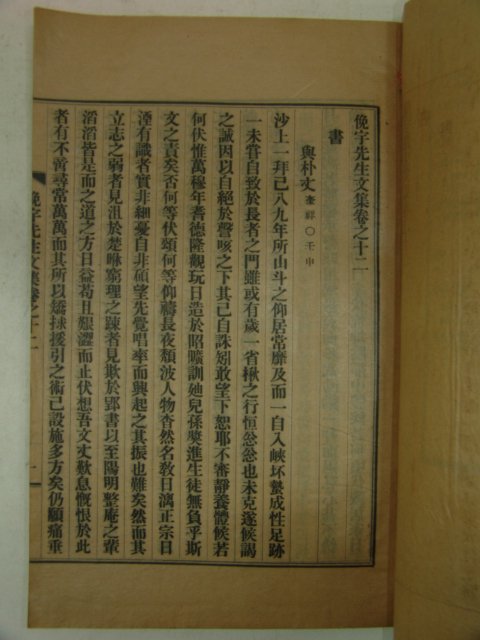 俛宇先生文集卷之十二
書
與朴丈 奎祥○壬申
沙上一拜已八九年所山斗之仰居常靡及而一自入峽坏蟄成性足跡
一未嘗自致於長者之門雖或有歲一省楸之行恒忩忩也未克遂候謁
之誠因以自絕於謦咳之下其已自誅矧敢望下恕耶不審靜養體候若
何伏惟萬穆年耆德隆觀玩日造於昭曠訓廸兒孫奬進生徒無負乎斯
文之責矣否何等伏頌何等仰禱長夜頹波人物杳然名敎日漓正宗日
湮有識者實非細憂自非碩望先覺唱率而興起之其振也難矣然而其
立志之弱者見沮於楚咻窮理之踈者見欺於郢書以至陽明整庵之輩
滔滔皆是而之道之方日益苟且艱澀而止伏想吾文丈歎息慨恨於此
者有不啻尋常萬萬而其所以矯捄援引之術已設施多方矣仍願痛垂
俛宇先生文集卷之十二
一